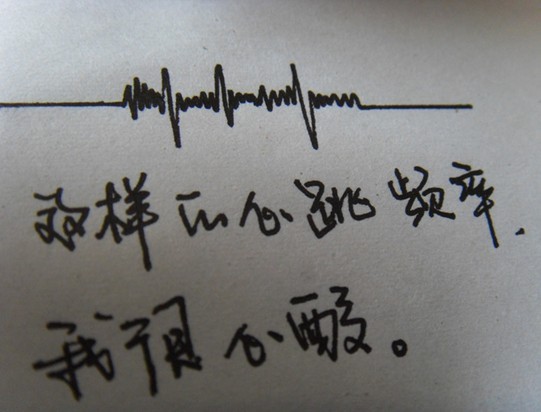 这样的心跳频率.
我预心酸。